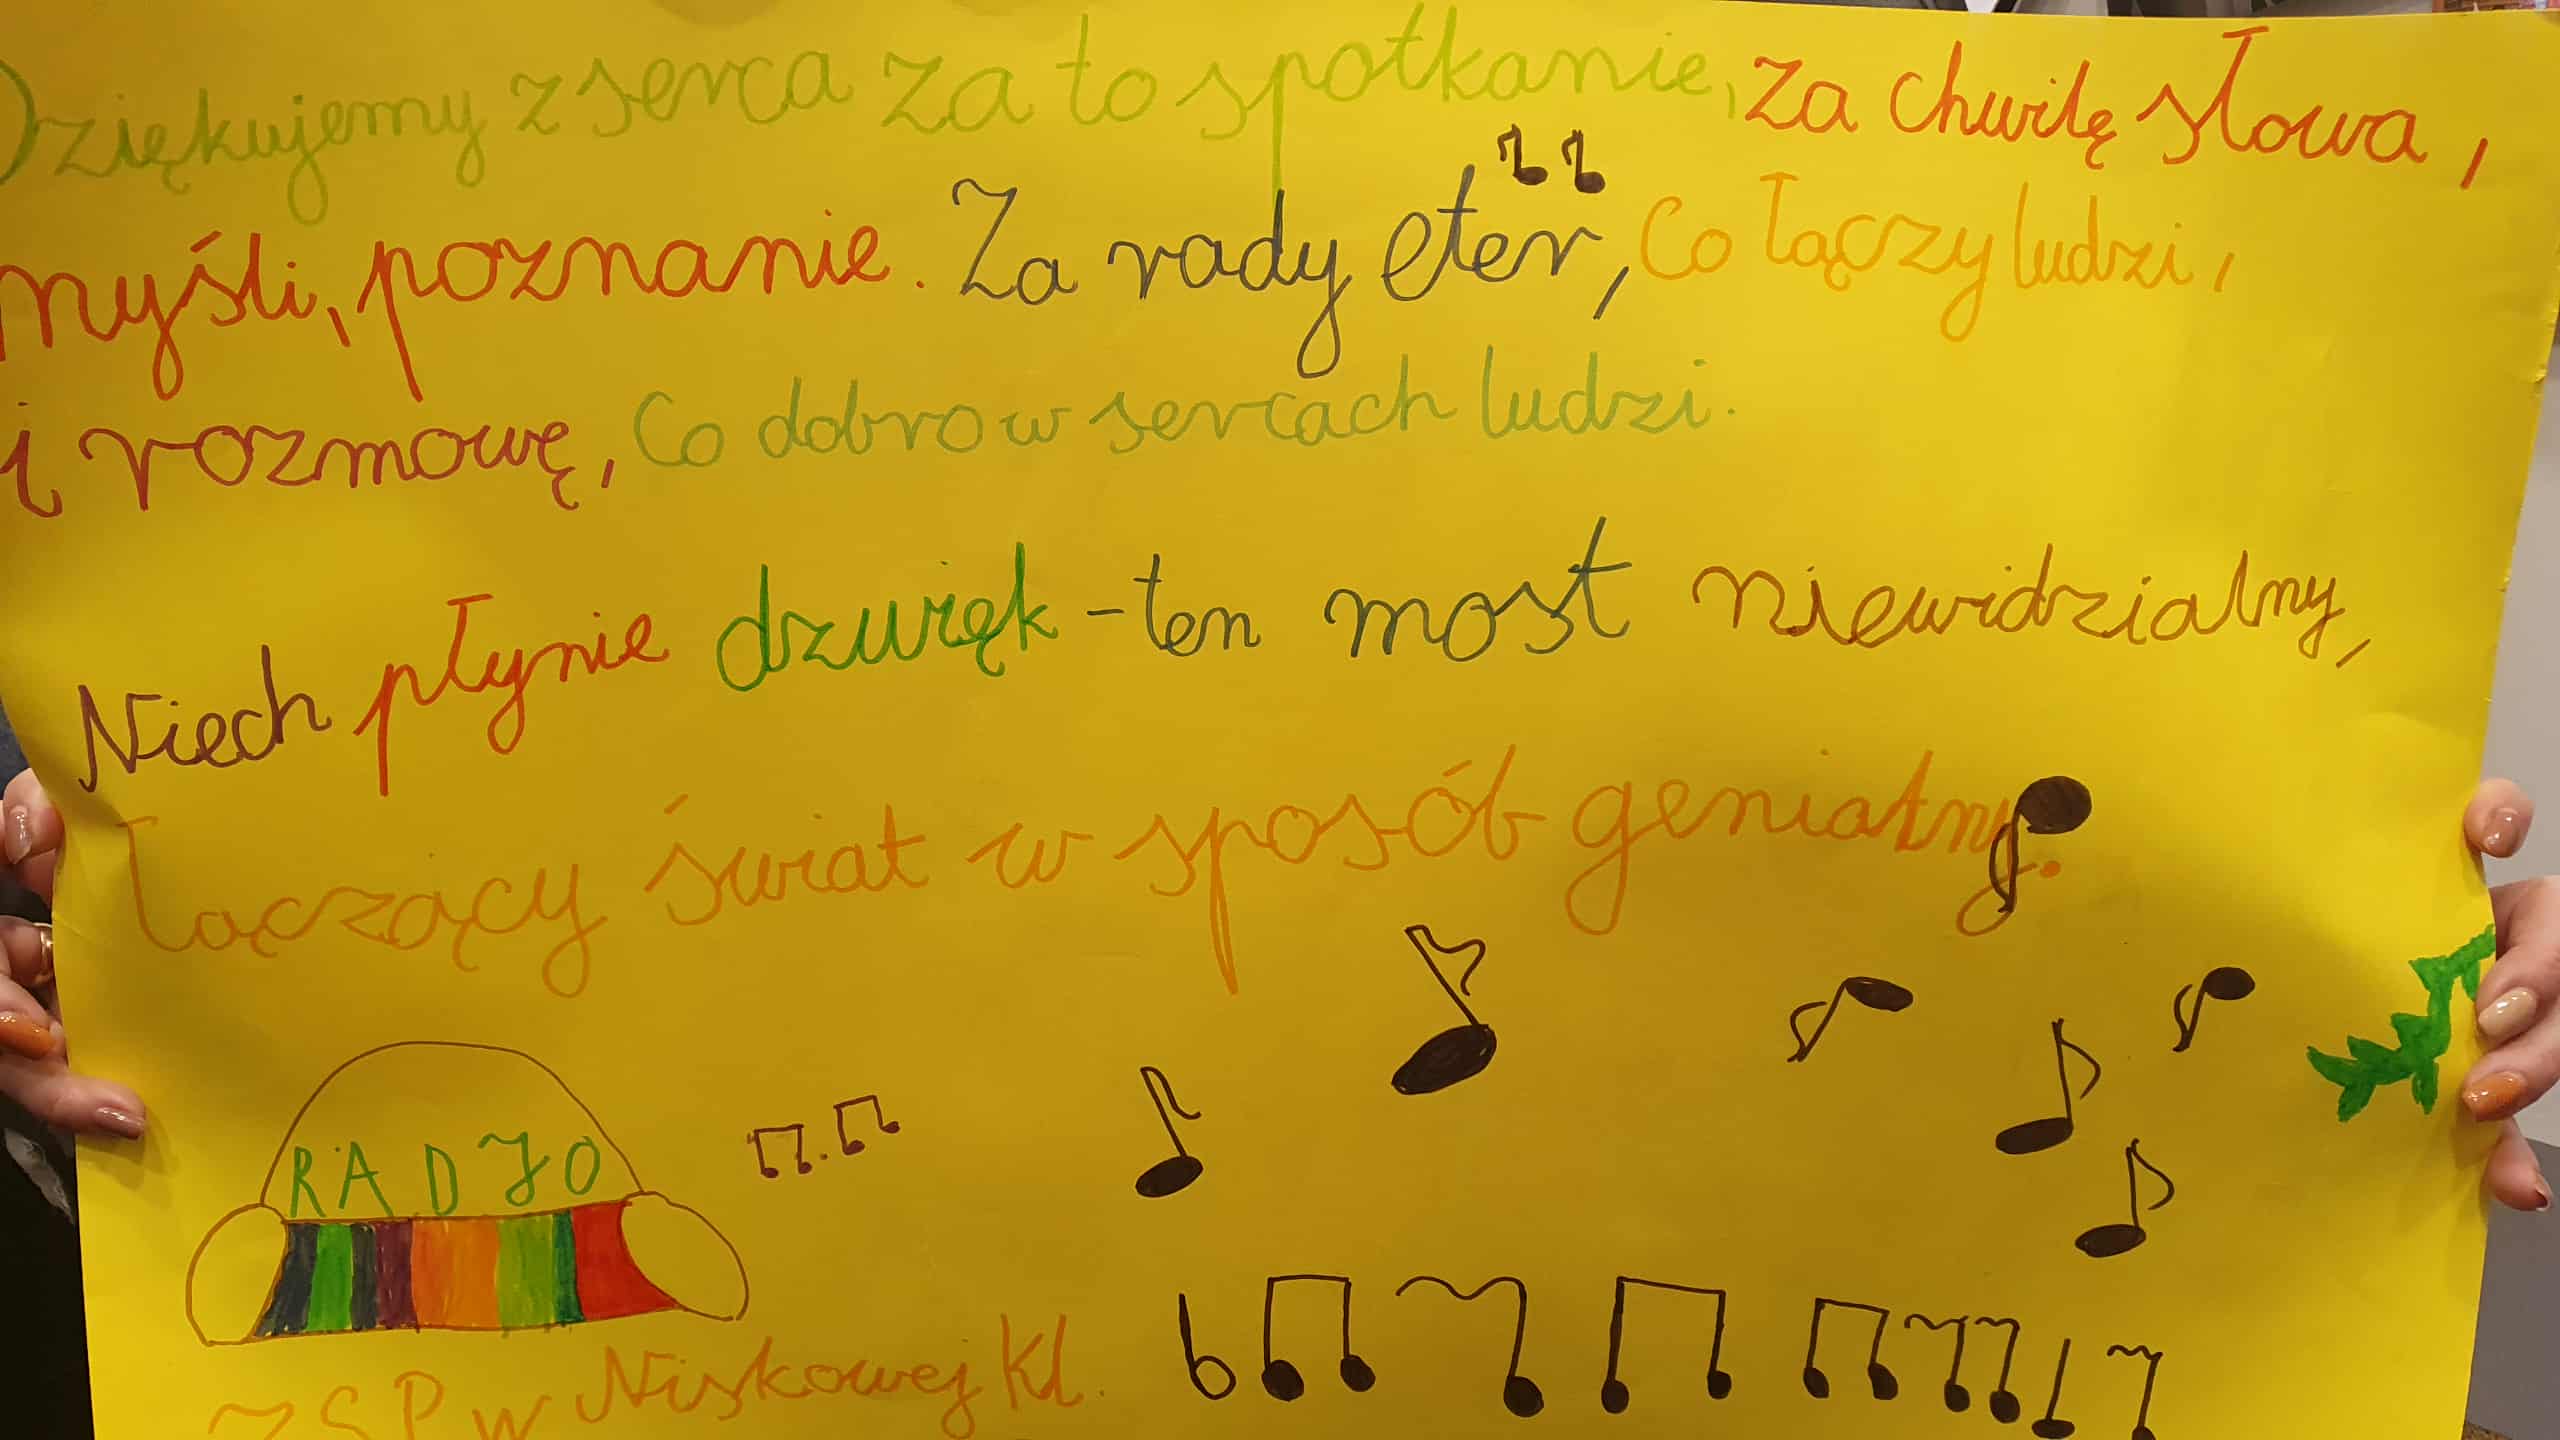 Dziękujemy z serca za to spotkanie, za chwilę słowa,
myśli, poznanie. Za rady eter, co łączy ludzi,
i rozmowę, co dobro w sercach ludzi.
Niech płynie dzwięk - ten most niewidzialny,
łączący świat w sposób genialny.
RADJO
ZSP w Niskowej Kl.